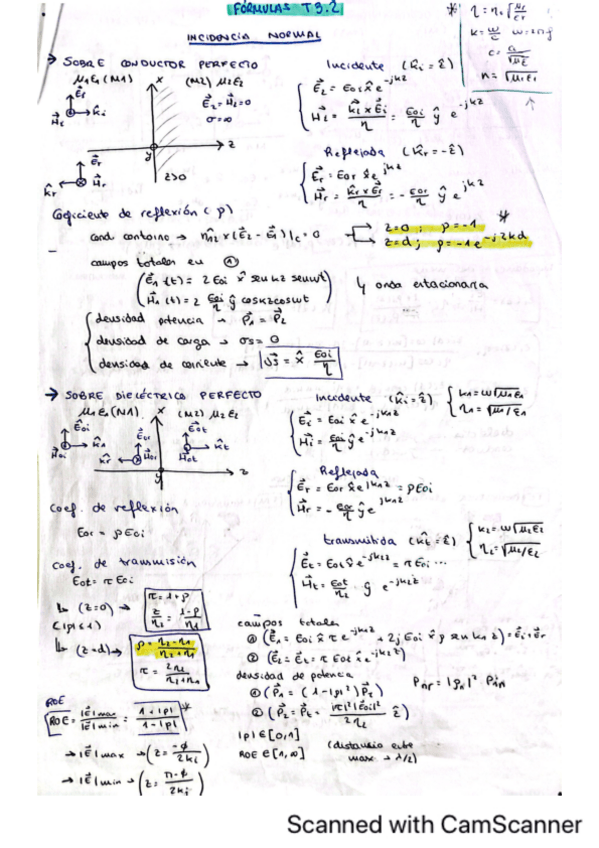 FÓRMULAS T3.2
INCIDENCIA NORMAL
* η = η₀ √(μr/εr)
k = w/c w = 2πf
n = √(μ₁ε₁)
→ SOBRE CONDUCTOR PERFECTO
μ₁ε₁ (M1) x (M2) μ₂ε₂
E₂ = H₂ = 0
σ = ∞
z>0
Incidente (k̂i = ẑ)
Hi = (k̂i x Ei)/η = E₀i/η ŷ e^-jkz
Reflejada (k̂r = -ẑ)
Er = E₀r x̂ e^jkz
Hr = (k̂r x Er)/η = - E₀r/η ŷ e^jkz
Coeficiente de reflexión (ρ)
cond contorno → n̂₁₂ x (E₂ - E₁)|c = 0
z=0 ; ρ=-1 *
z=d ; ρ=-1 e^-j2kd
campos totales en ①
E₁(t) = 2 E₀i x̂ sen kz sen wt
H₁(t) = 2 E₀i/η ŷ cos kz cos wt
↳ onda estacionaria
densidad potencia → P₁ = P₂
densidad de carga → σs = 0
densidad de corriente → Js = x̂ E₀i/η
→ SOBRE DIELÉCTRICO PERFECTO
μ₁ε₁ (M1) x (M2) μ₂ε₂
Incidente (k̂i = ẑ)
k₁ = w√(μ₁ε₁)
η₁ = √(μ₁/ε₁)
Ei = E₀i x̂ e^-jk₁z
Hi = E₀i/η ŷ e^-jk₁z
Reflejada
Er = E₀r x̂ e^jk₁z = ρE₀i
Hr = - E₀r/η ŷ e^jk₁z
coef. de reflexión
E₀r = ρE₀i
transmitida (k̂t = ẑ)
k₂ = w√(μ₂ε₂)
η₂ = √(μ₂/ε₂)
Et = E₀t x̂ e^-jk₂z = τ E₀i ...
Ht = E₀t/η₂ ŷ e^-jk₂z
coef. de transmisión
E₀t = τ E₀i
↳ (z=0) → τ = 1+ρ
(|ρ| ≤ 1)
↳ (z=d) → ρ = (η₂ - η₁)/(η₂ + η₁)
τ = 2η₂/(η₂ + η₁)
campos totales
① (E₁ = E₀i x̂ τ e^-jk₁z + 2j E₀i x̂ ρ sen k₁z) = Ei + Er
densidad de potencia
① (P₁ = (1-|ρ|²) Pi)
② (P₂ = Pt = |τ|²|E₀i|²/2η₂ ẑ)
|ρ| ∈ [0,1]
ROE ∈ [1,∞]
(distancia entre
max → λ/2)
ROE
ROE = |E|max/|E|min = (1+|ρ|)/(1-|ρ|) *
→ |E| max → (z = -φ/2k₁)
→ |E| min → (z = (π-φ)/2k₁)
Scanned with CamScanner